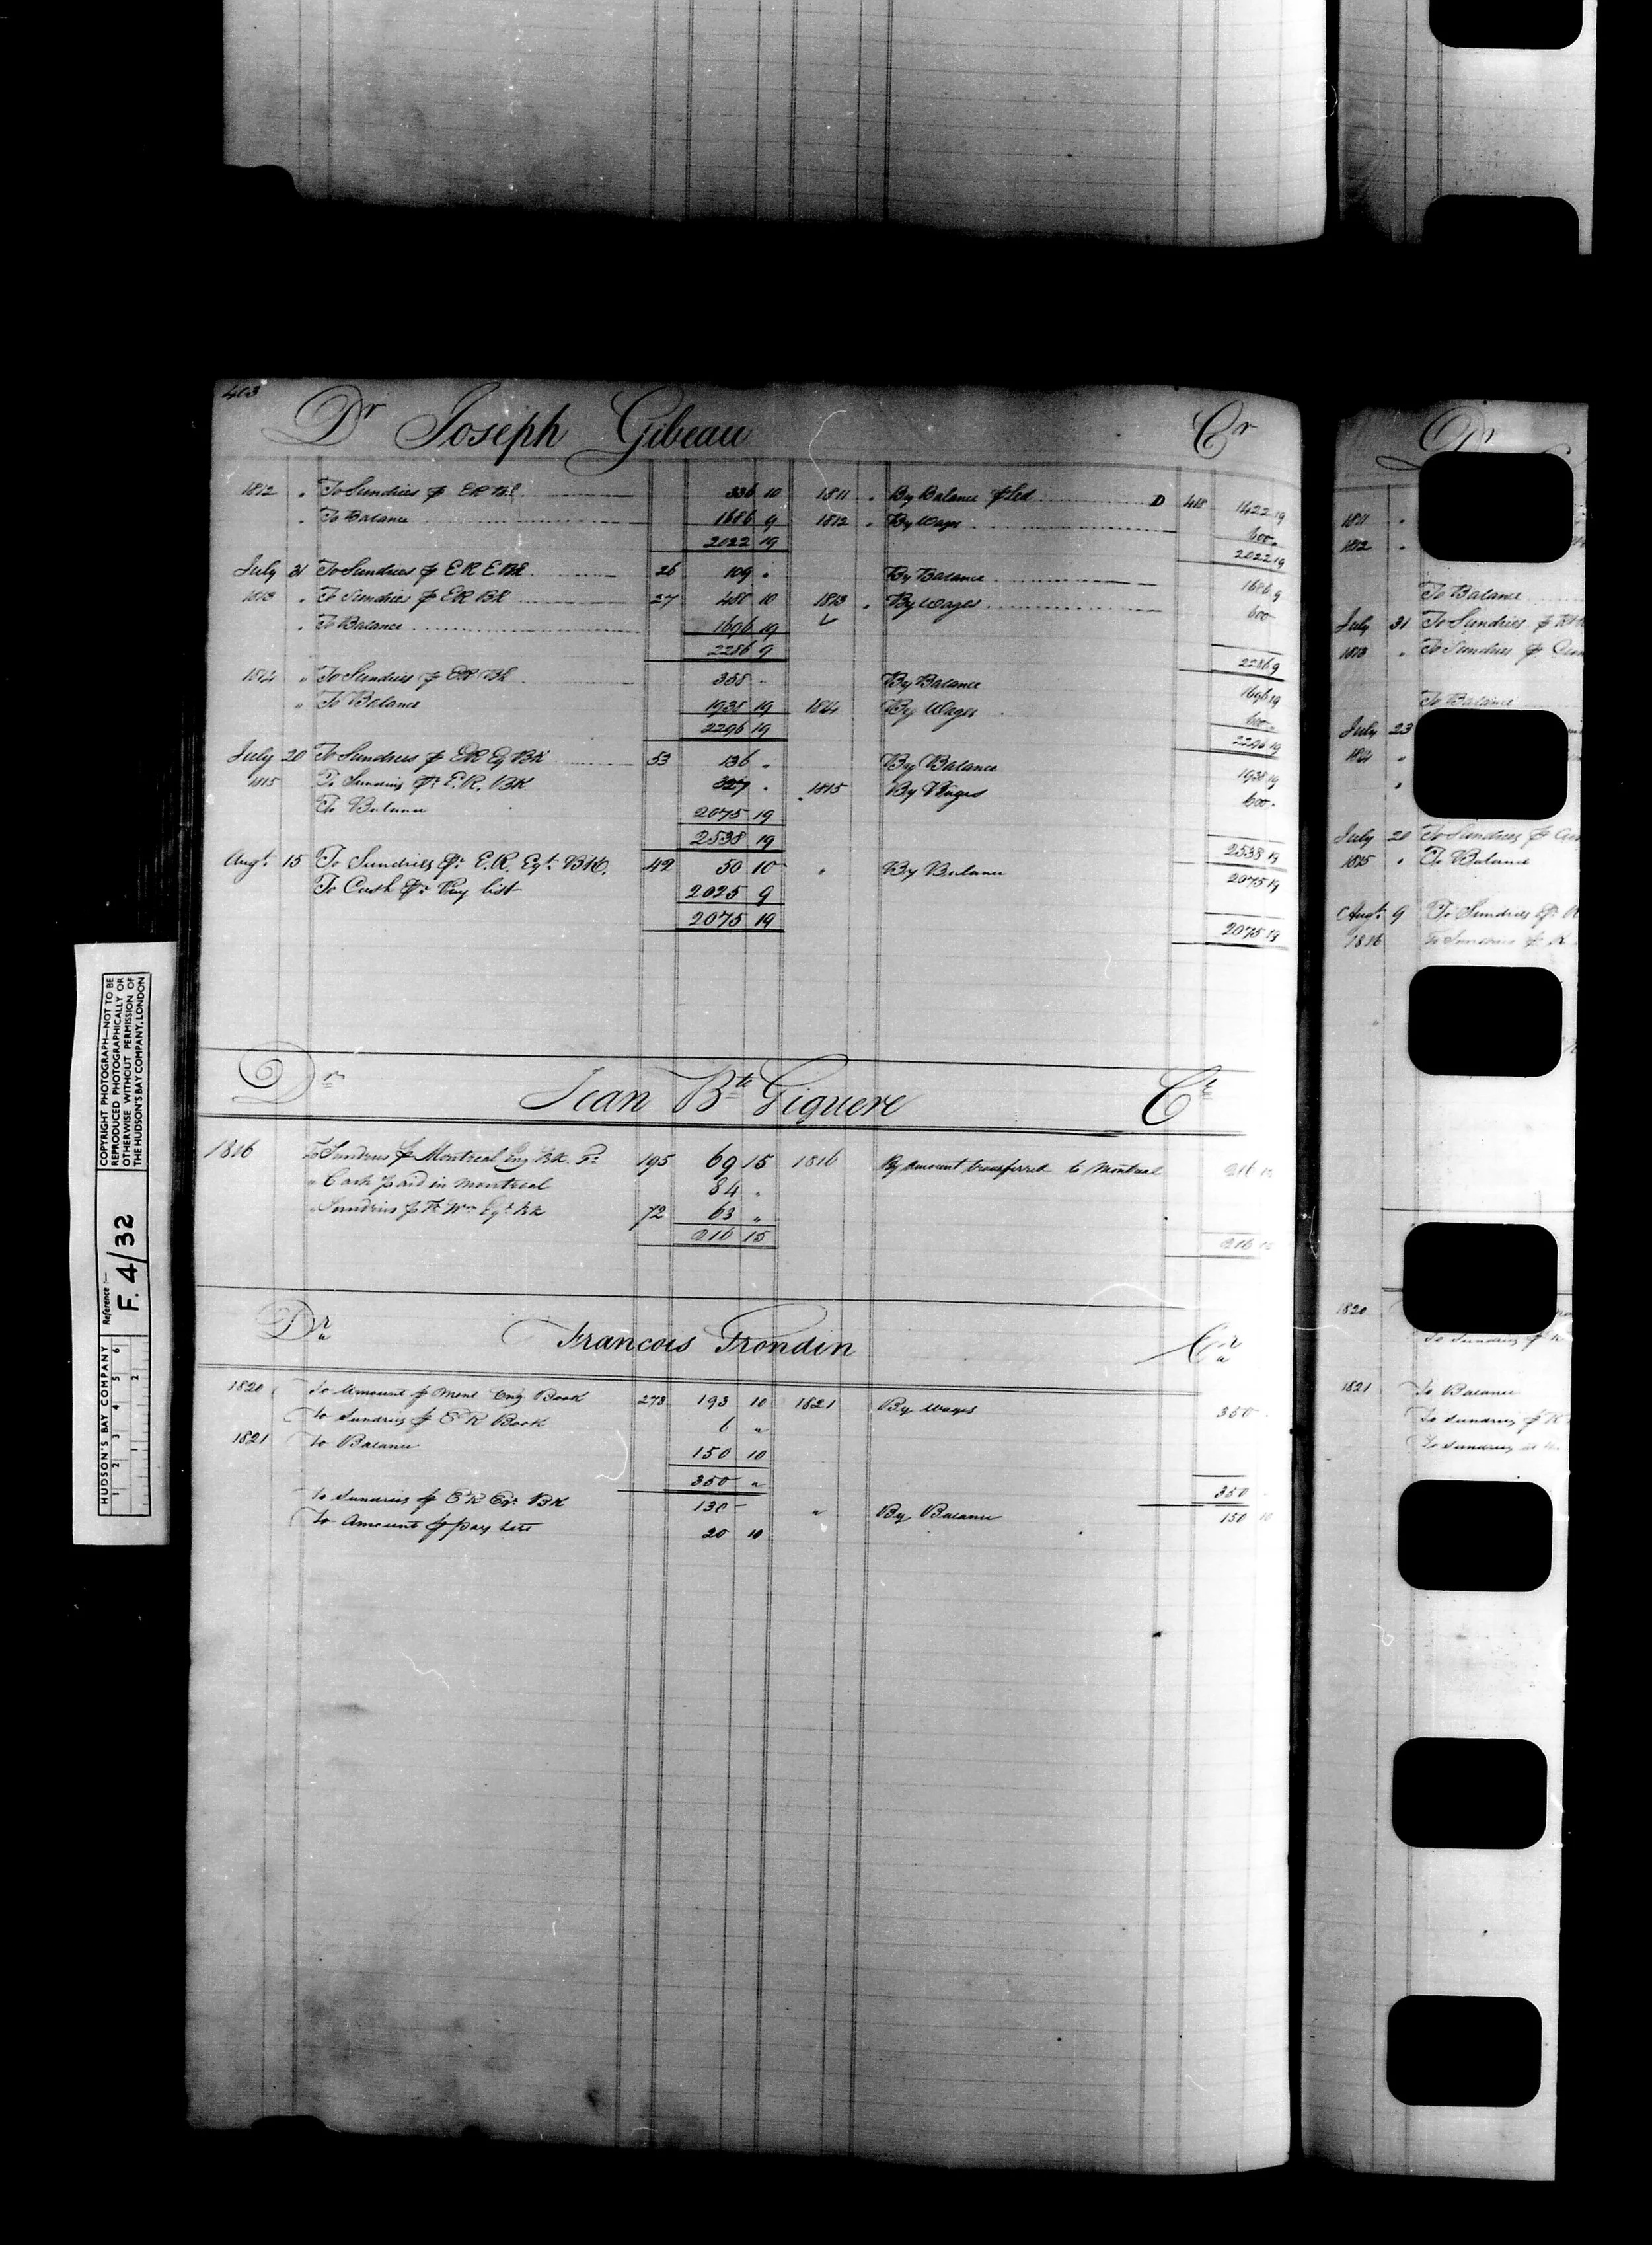 403
Dr Joseph Gibeau Cr
1812 " To Sundries p ER Bk 336 10 1811 " By Balance p Led D 418 1422 19
" To Balance 1686 9 1812 " By Wages 600 "
2022 19 2022 19
July 31 To Sundries p E R E Bk 26 109 " By Balance 1686 9
1813 " To Sundries p ER Bk 27 480 10 1813 " By Wages 600
" To Balance 1696 19
2286 9 2286 9
1814 " To Sundries p ER Bk 358 " By Balance 1696 19
" To Balance 1938 19 1814 By Wages 600
2296 19 2296 19
July 20 To Sundries p ER Eq Bk 53 136 " By Balance 1938 19
1815 To Sundries pr E.R. BK. 327 " 1815 By Wages 600 "
To Balance 2075 19
2538 19 2538 19
Augt 15 To Sundries pr E.R. Eqt BK. 42 50 10 " By Balance 2075 19
To Cash pr Pay list 2025 9
2075 19 2075 19
Dr Jean Bte Giguere Cr
1816 To Sundries p Montreal Eng Bk. 195 69 15 1816 By amount transferred to Montreal 216 15
" Cash paid in Montreal 84 "
" Sundries p Ft Wm Eqt Bk 72 63 "
216 15 216 15
Dr Francois Frondin Cr
1820 To Amount p Monl Eng Book 273 193 10 1821 By wages 350 "
To Sundries p E R Book 6 "
1821 To Balance 150 10
350 " 350
To Sundries p E R Eqt BK 130 " By Balance 150 10
To Amount p pay list 20 10
Dr
1811 "
1812 "
To Balance
July 31 To Sundries p
1813 " To Sundries p
To Balance
July 23
1814 "
July 20 To Sundries p
1815 " To Balance
Augt 9 To Sundries pr
1816 To Sundries p
1820
To Sundries p
1821 To Balance
To Sundries p
To Sundries
HUDSON'S BAY COMPANY
1 2 3 4 5 6
1 2
Reference :—
F. 4/32
COPYRIGHT PHOTOGRAPH—NOT TO BE
REPRODUCED PHOTOGRAPHICALLY OR
OTHERWISE WITHOUT PERMISSION OF
THE HUDSON'S BAY COMPANY, LONDON